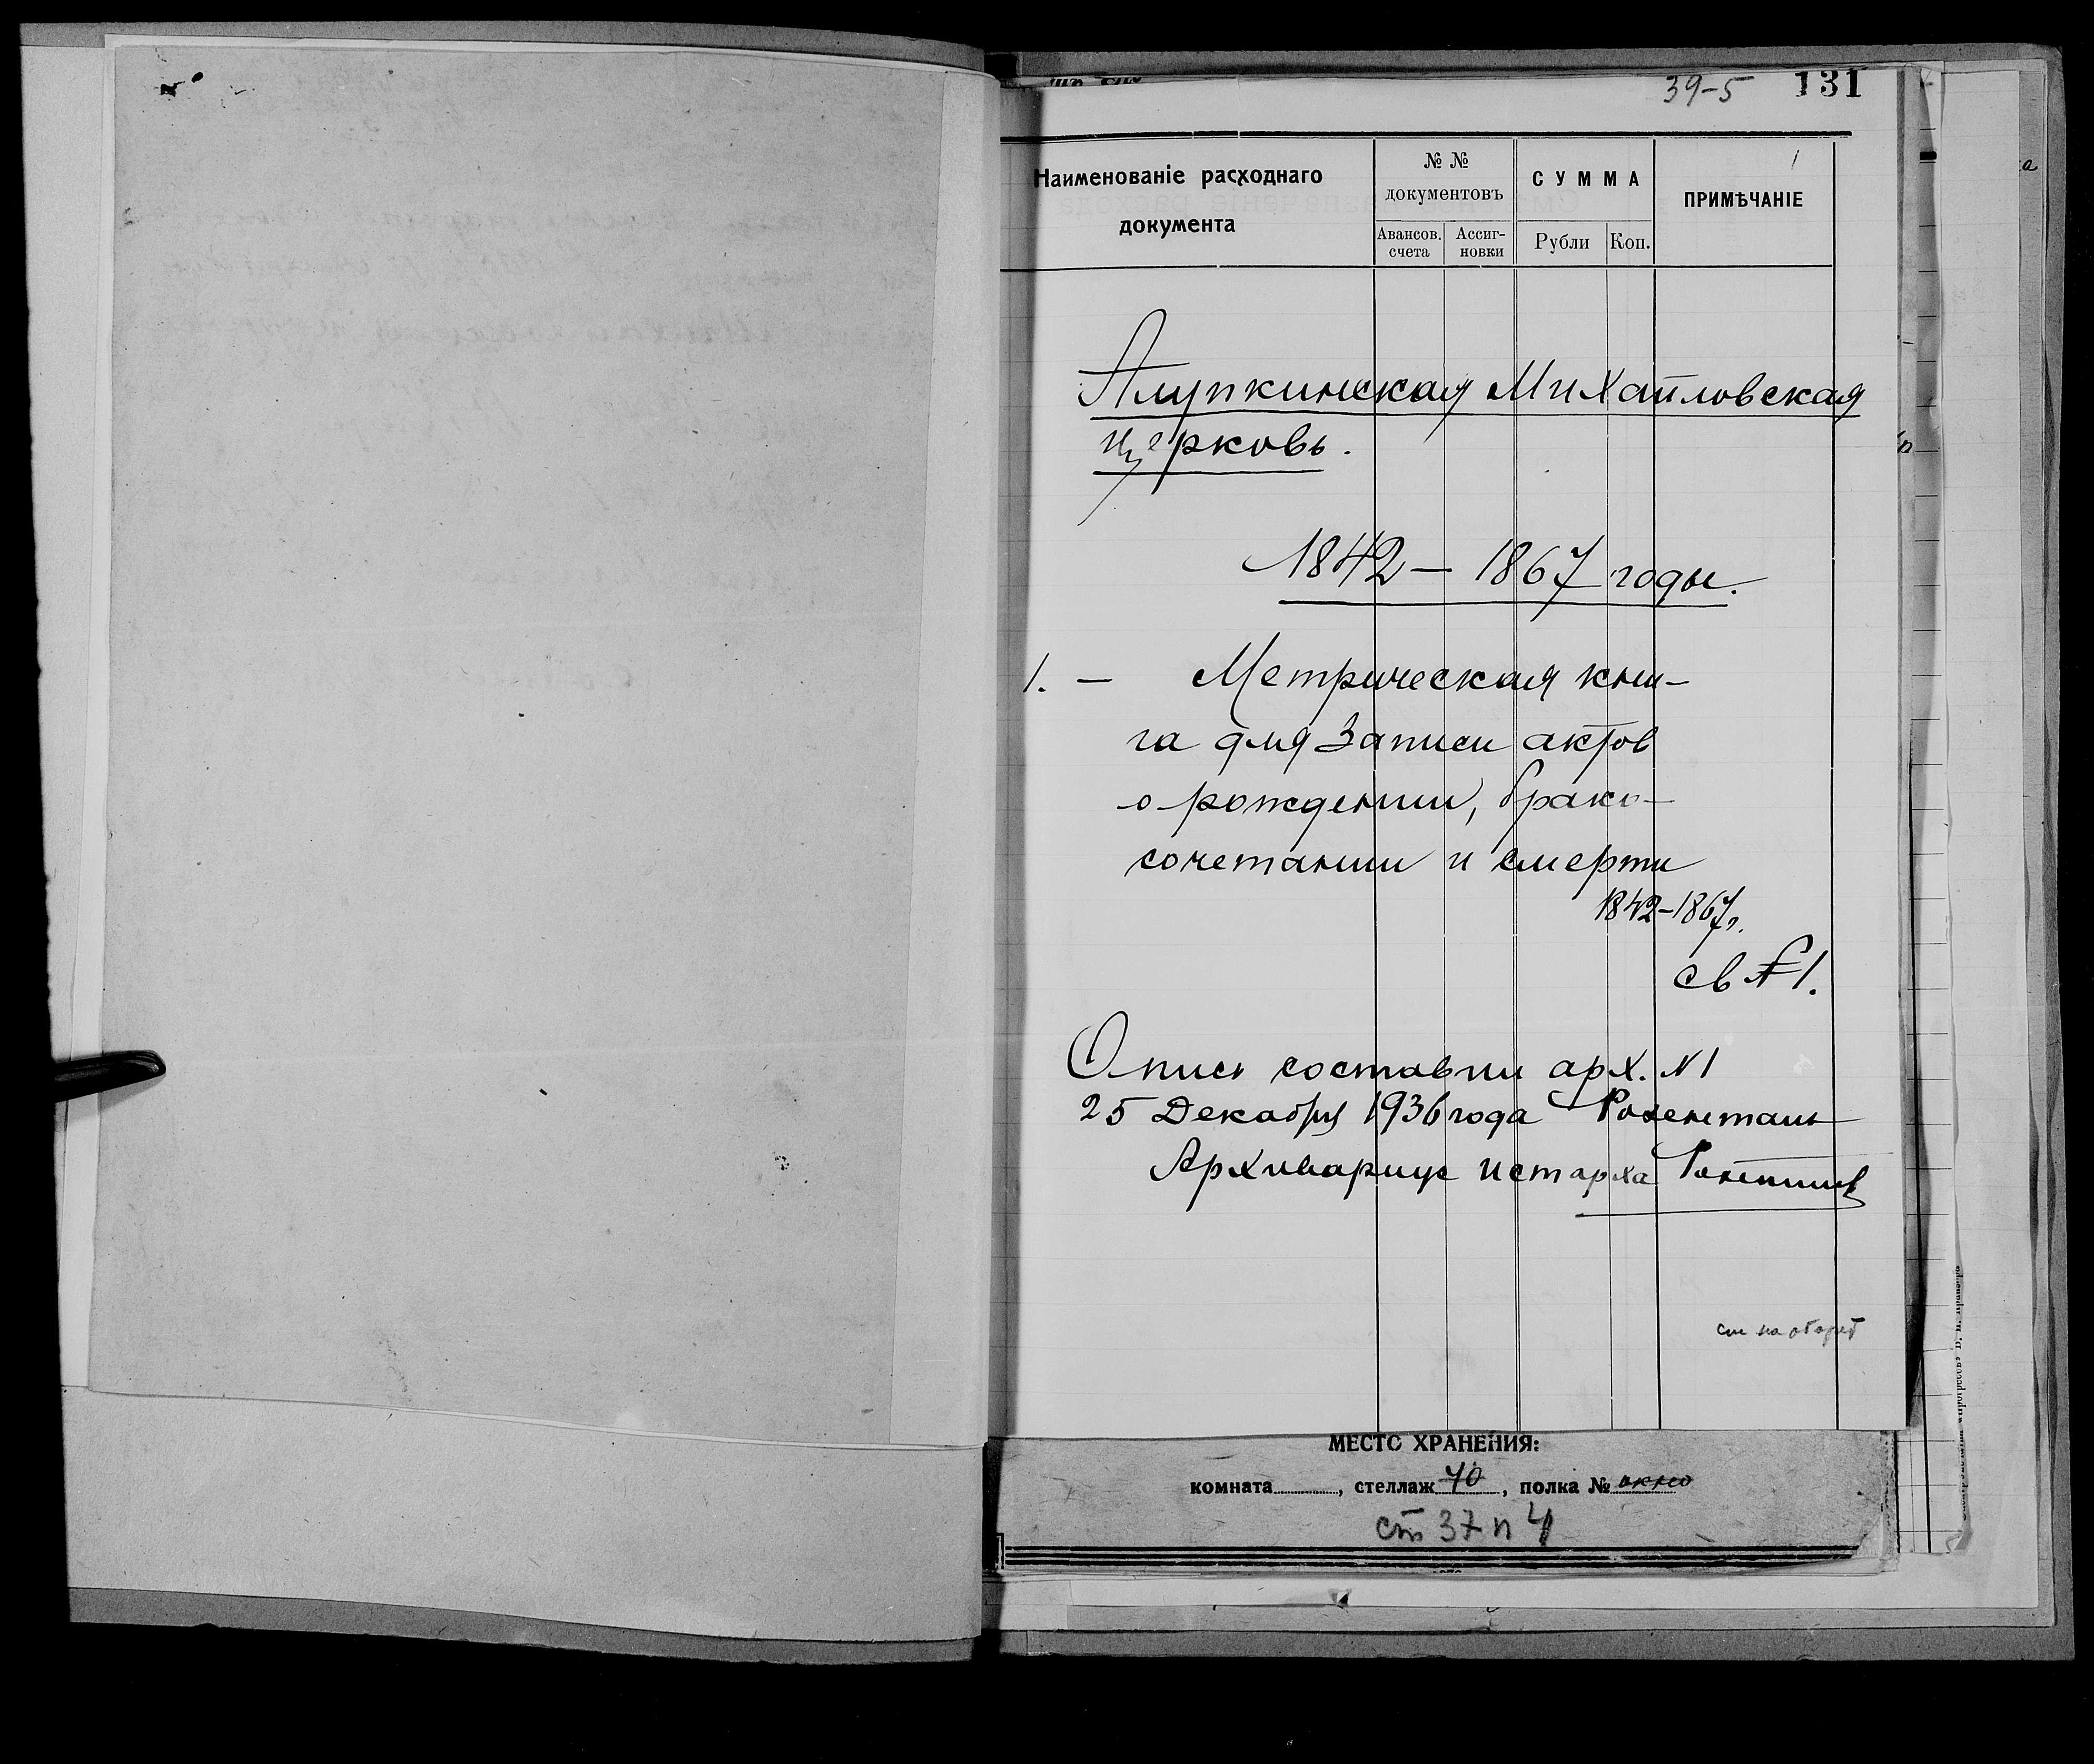 39-5 131
Наименованіе расходнаго
документа
№ №
документовъ
Авансов.
счета
Ассиг-
новки
СУММА
Рубли
Коп.
ПРИМѢЧАНІЕ
1
Алупкинская Михайловская
церковь.
1842 — 1867 годы.
1. — Метрическая кни-
га для записи актов
о рождении, брако-
сочетании и смерти
1842-1867г.
св № 1.
Опись составил арх. N 1
25 Декабря 1936 года
Архивариус истарха
см на оборот
МЕСТО ХРАНЕНИЯ:
комната , стеллаж 40 , полка № окно
ст 37 п 4